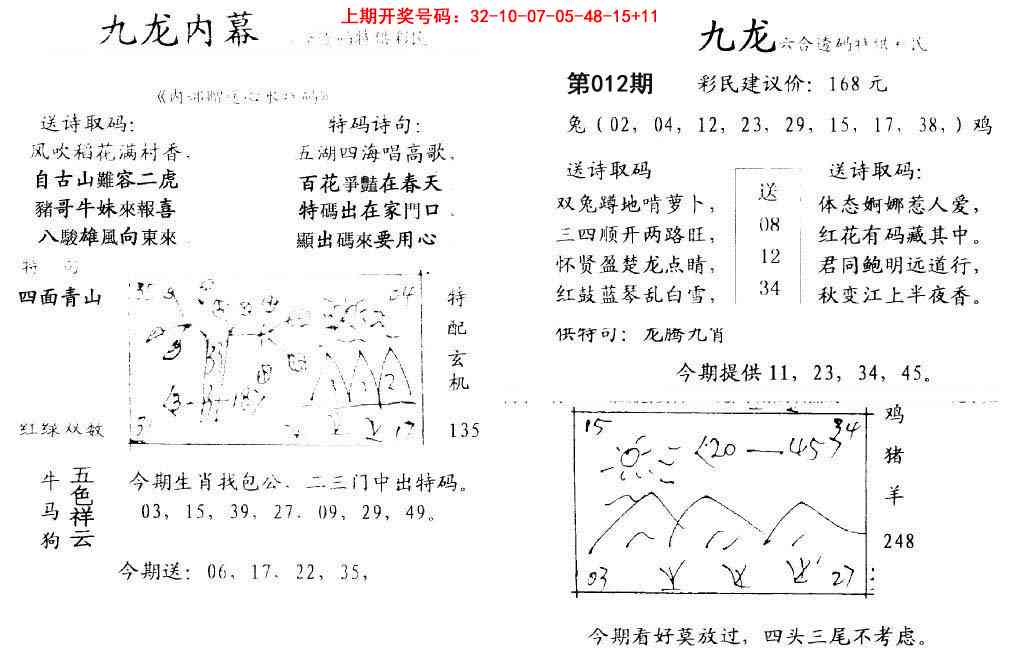 上期开奖号码：32-10-07-05-48-15+11
九龙内幕
送诗取码：
风吹稻花满村香．
自古山難容二虎
豬哥牛妹來報喜
八駿雄風向東來
特码诗句：
五湖四海唱高歌．
百花爭豔在春天
特碼出在家門口．
顯出碼來要用心
特 句
四面青山
红绿双数
04
13
特配玄机
135
牛马狗
五色祥云
今期生肖找包公．二三门中出特码。
03，15，39，27．09，29，49。
今期送：06，17．22，35，
九龙六合透码特供彩民
第012期
彩民建议价：168元
兔（02，04，12，23，29，15，17，38，）鸡
送诗取码
双兔蹲地啃萝卜，
三四顺开两路旺，
怀贤盈楚龙点睛，
红鼓蓝琴乱白雪，
送
08
12
34
送诗取码：
体态婀娜惹人爱，
红花有码藏其中。
君同鲍明远道行，
秋变江上半夜香。
供特句：龙腾九霄
今期提供11，23，34，45。
15
34
20—45
03
27
鸡
猪
羊
248
今期看好莫放过，四头三尾不考虑。